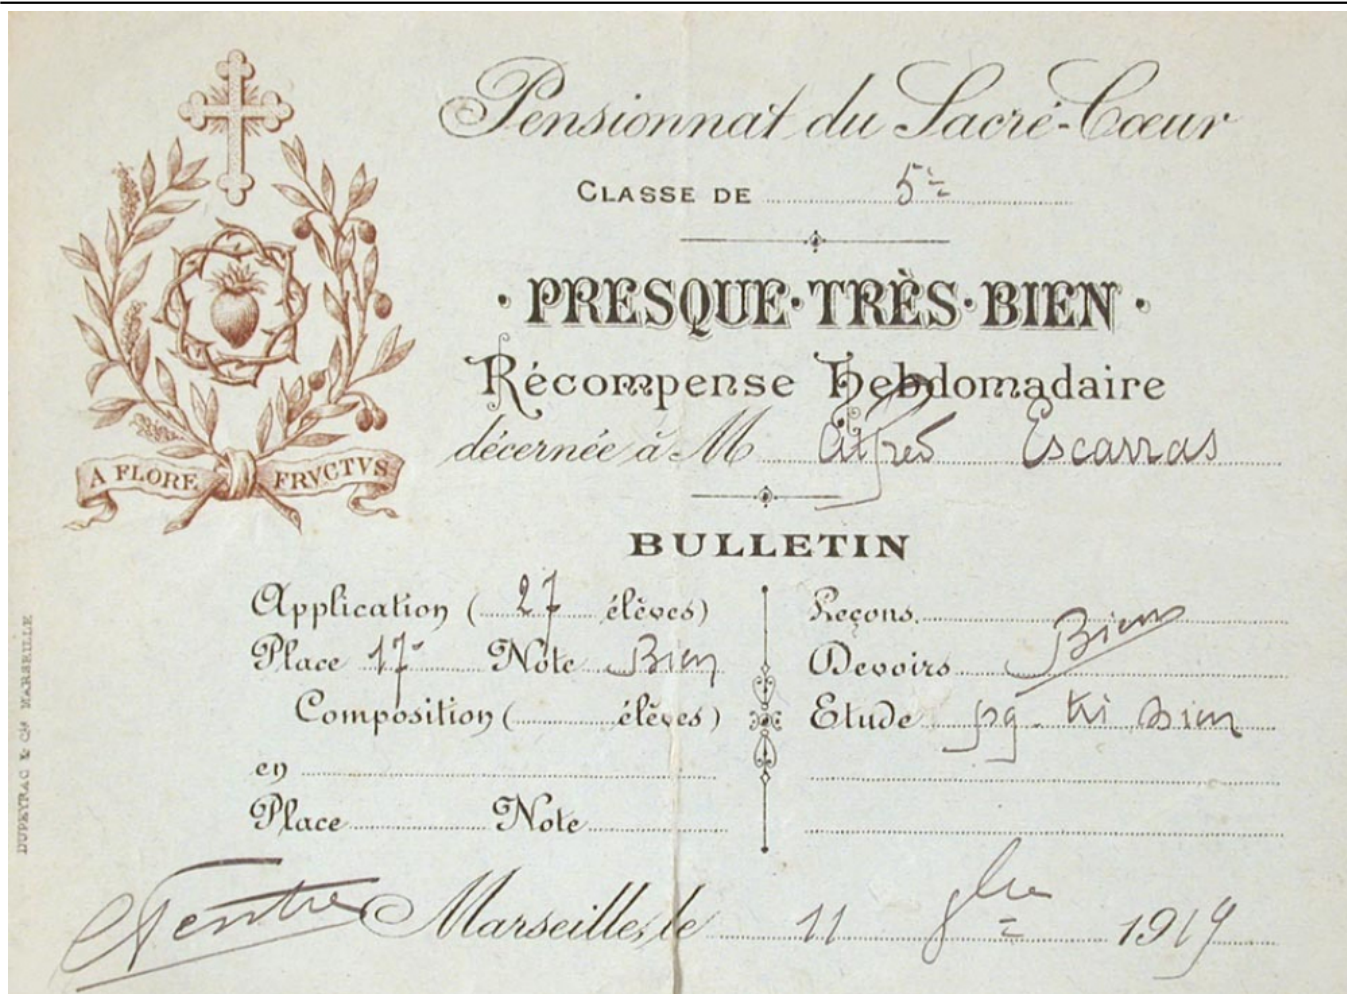 Pensionnat du Sacré-Cœur
CLASSE DE 5e
· PRESQUE · TRÈS · BIEN ·
Récompense Hebdomadaire
décernée à M Alfred Escarras
A FLORE FRVCTVS
BULLETIN
Application ( 27 élèves)
Place 17e Note Bien
Composition ( élèves )
en
Place Note
Leçons.
Devoirs Bien
Etude pq. tr Bien
Marseille, le 11 8bre 1919
DUPEYRAC & Cie MARSEILLE